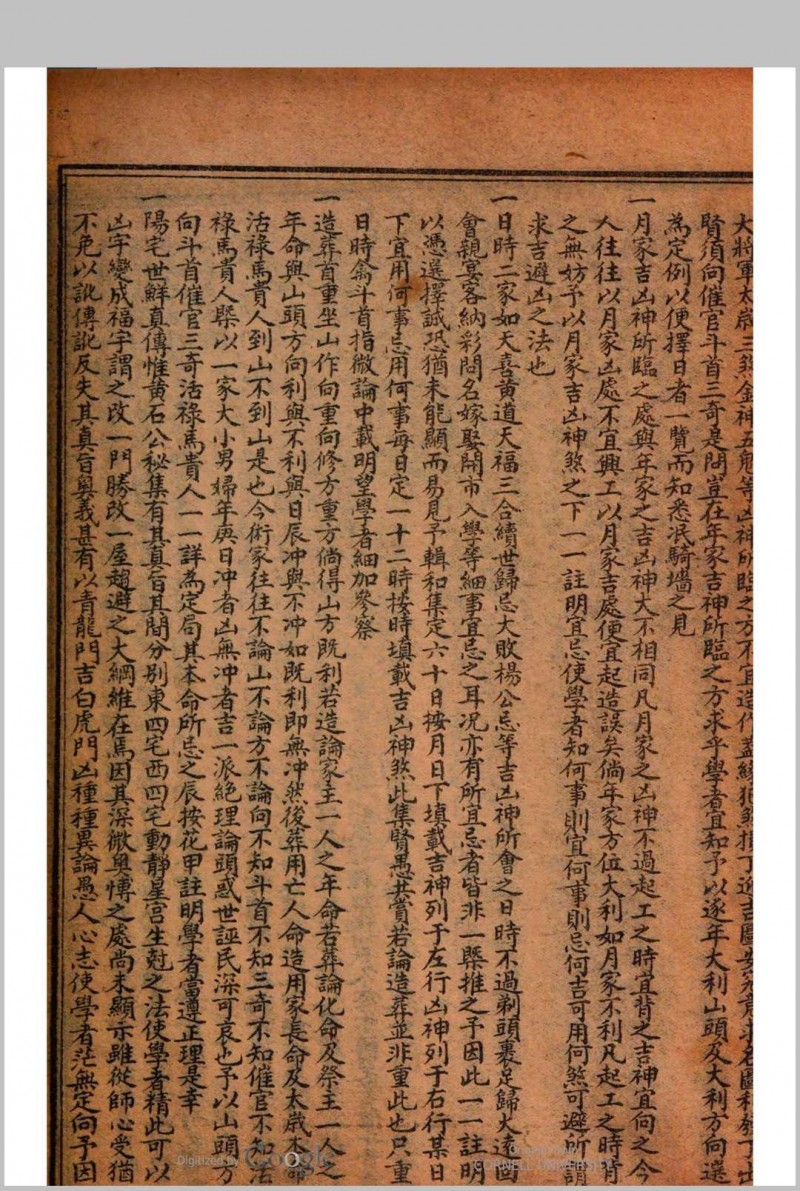 大將軍太歲三煞金神五鬼等凶神所臨之方不宜造作蓋緣犯煞損丁
腎須向催官斗首三奇是問豈在年家吉神所臨之方求乎學者宜知予以逐年大利山頭及大利方向選
為定例以便擇日者一覽而知悉泯騎墻之見
一月家吉凶神所臨之處與年家之吉凶神大不相同凡月家之凶神不過起工之時宜背之吉神宜向之今
人往往以月家凶處不宜興工以月家吉處便宜起造誤矣倘年家方位大利如月家不利凡起工之時背
之無妨予以月家吉凶神煞之下一一註明宜忌使學者知何事則宜何事則忌何吉可用何煞可避所謂
求吉避凶之法也
一日時二家如天喜黃道天福三合續世歸忌大敗楊公忌等吉凶神所會之日時不過剃頭裹足歸火遠回
會親宴客納彩問名嫁娶開市入學等細事宜忌之耳况亦有所宜忌者皆非一槩推之予因此一一註明
以憑選擇誠恐猶未能顯而易見予輯和集定六十日按月日下填載吉神列于左行凶神列于右行某日
下宜用何事忌用何事每日定一十二時按時填載吉凶神煞此集賢愚共賞若論造葬並非重此也只重
日時龠斗首指微論中載明望學者細加參察
一造葬首重坐山作向重向修方重方倘得山方既利若造論家主一人之年命若葬論化命及祭主一人之
年命與山頭方向利與不利與日辰冲與不冲如既利即無冲然後葬用亡人命造用家長命及太歲本命
活祿馬貴人到山不到山是也今術家往往不論山不論方不論向不知斗首不知三奇不知催官不知活
祿馬貴人槩以一家大小男婦年庚日冲者凶無冲者吉一派絶理論頭惑世誣民深可哀也予以山頭方
向斗首催官三奇活祿馬貴人一一詳為定局其本命所忌之辰按花甲註明學者當遵正理是幸
一陽宅世鮮真傳惟黄石公秘集有其真旨其間分别東四宅西四宅動靜星宫生尅之法使學者精此可以
凶宇變成福宇謂之改一門勝改一屋趨避之大綱維在焉因其深微奥博之處尚未顯示雖從師心受猶
不免以訛傳訛反失其真旨奥義甚有以青龍門吉白虎門凶種種異論愚人心志使學者茫無定向予因
Digitized by Google
CORNELL UNIVERSITY